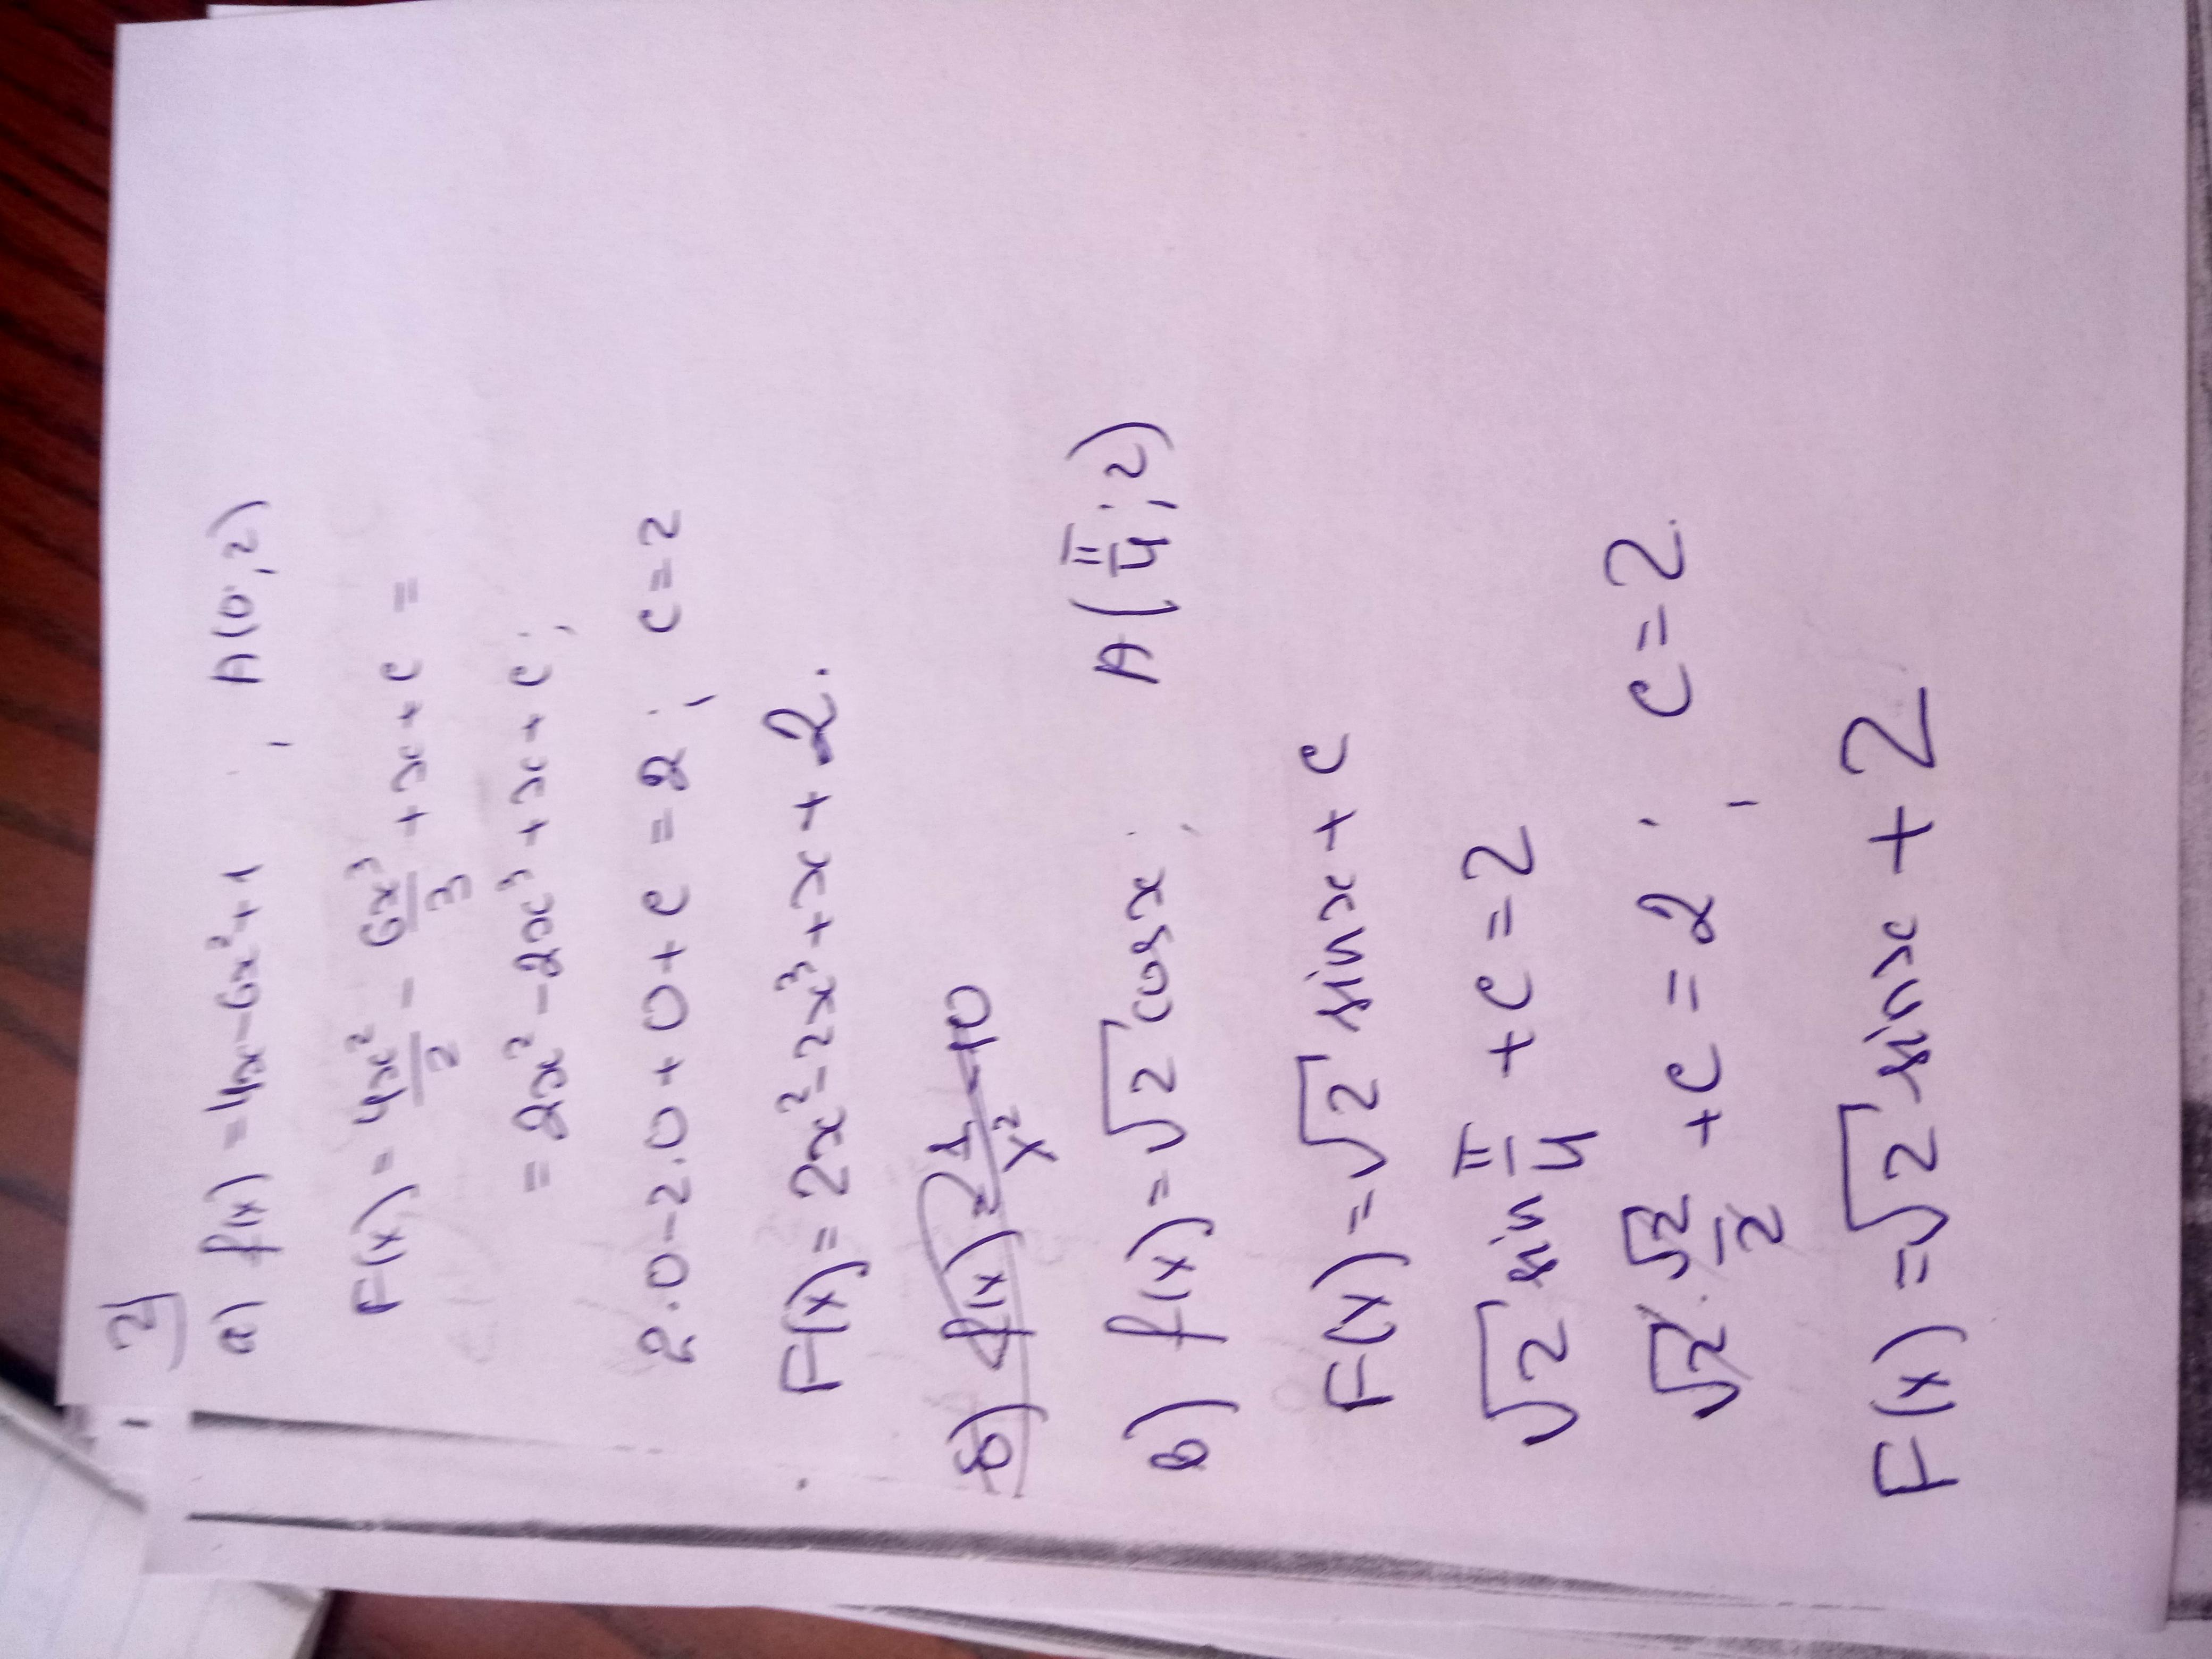 2)
а) f(x) = 4x - 6x² + 1 ; A(0; 2)
F(x) = 4x²/2 - 6x³/3 + x + c =
= 2x² - 2x³ + x + c;
2·0 - 2·0 + 0 + c = 2 ; c = 2
F(x) = 2x² - 2x³ + x + 2.
б) f(x) = 1/x² - 10
в) f(x) = √2 cosx ; A(π/4; 2)
F(x) = √2 sinx + c
√2 sin π/4 + c = 2
√2 · √2/2 + c = 2 ; c = 2
F(x) = √2 sinx + 2